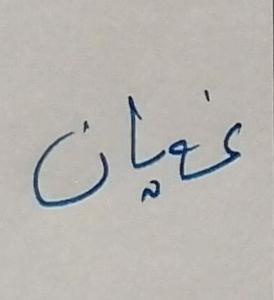 غويان